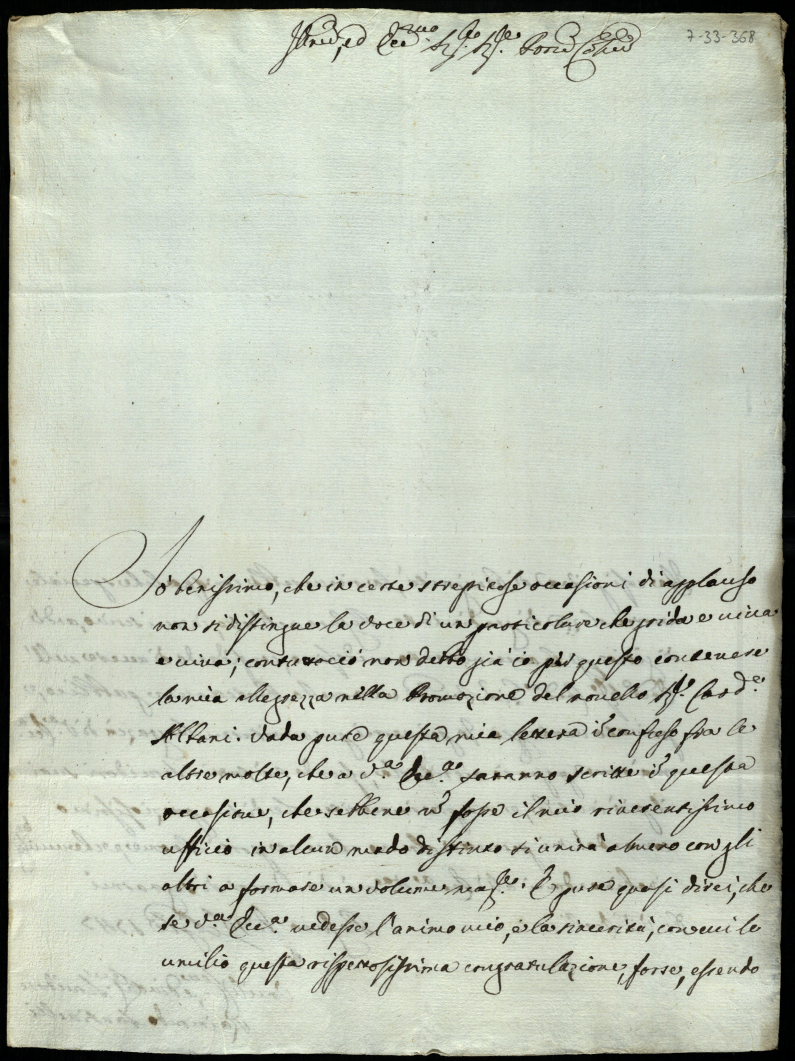 Ill.mo, ed Ecc.mo Sig.re Sig.re P.rone Col.mo
7-33-368
So benissimo, che in certe strepitose occasioni di applauso
non si distingue la voce di un particolare che grida e viva
e viva; contuttociò non debbo già io per questo contenere
la mia allegrezza nella Promozione del novello Sig.r Card.e
Albani. Vada pure questa mia lettera i confuso fra le
altre molte, che a V.a Ecc.a saranno scritte i questa
occasione, che sebbene n fosse il mio riverentissimo
ufficio in alcun modo distinto si unirà almeno con gli
altri a formare un volume mag.re. E pure quasi direi, che
se V.a Ecc.a vedesse l'animo mio, e la sincerità, con cui le
umilio questa rispettosissima congratulazione, forse, essendo